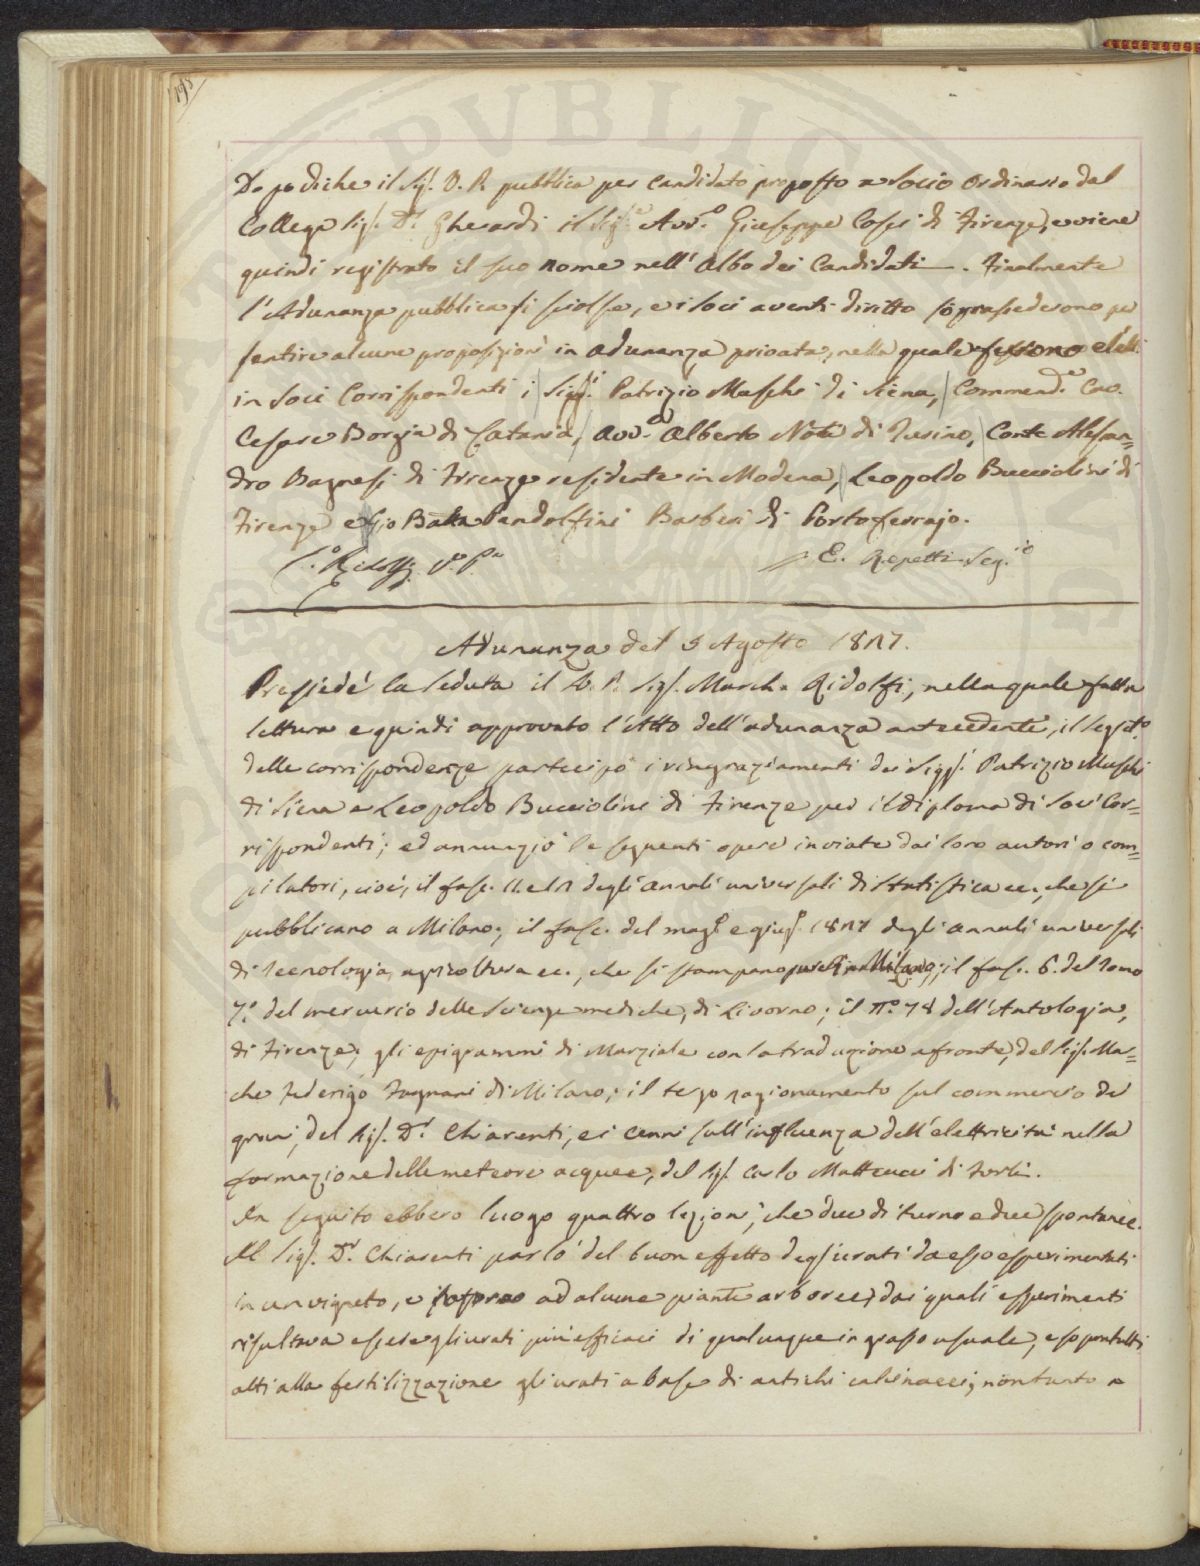 193
Dopodiche il Sig.r V. P. pubblica per Candidato proposto a Socio ordinario dal
Collega Sig.r D.r Gherardi il Sig.re Avv.o Giuseppe Coseri di Firenze, e viene
quindi registrato il suo nome nell'Albo dei Candidati. Finalmente
l'Adunanza pubblica si sciolse, e i Soci aventi diritto soprassederono per
sentire alcune proposizioni in adunanza privata, nella quale furono eletti
in Soci Corrispondenti i Sigg.ri Patrizio Maschi di Siena, Commend.e Cav.
Cesare Borgia di Catania, Avv.o Alberto Nota di Torino, Conte Alessan=
dro Bagnesi di Firenze residente in Modena, Leopoldo Bucciolini di
Firenze e Gio Batta Pandolfini Barberi di Portoferrajo.
C.o Ridolfi V.o P.te E. Repetti Seg.rio
Adunanza del 5 Agosto 1827.
Presiedé la Seduta il V. P. Sig.r March. Ridolfi, nella quale fatta
lettura e quindi approvato l'Atto dell'adunanza antecedente, il Segret.o
delle corrispondenze partecipò i ringraziamenti dei Sigg.ri Patrizio Maschi
di Siena e Leopoldo Bucciolini di Firenze per il diploma di Soci Cor=
rispondenti; ed annunziò le seguenti opere inviate dai loro autori o com=
pilatori, cioè, il fasc. degli annali universali di Statistica ec., che si
pubblicano a Milano; il fasc. del mag.o e giug.o 1827 degli annali universali
di Tecnologia, agricoltura ec., che si stampano pure in Milano; il fasc. 6. del Tomo
7.o del mercurio delle Scienze mediche, di Livorno; il n.o 78 dell'Antologia,
di Firenze; gli epigrammi di Marziale con la traduzione a fronte, del Sig. Mar=
che Federigo Fagnani di Milano; il terzo ragionamento sul commercio de
grani, del Sig.r D.r Chiarenti, e i cenni sull'influenza dell'elettricità nella
formazione delle meteore acquee, del Sig.r Carlo Matteucci di Forlì.
In seguito ebbero luogo quattro lezioni, che due di turno e due spontanee.
Il Sig.r D.r Chiarenti parlò del buon effetto degli urati da esso esperimentati
in un vigneto, e intorno ad alcune piante arboree, dai quali esperimenti
risultava essere gli urati più efficaci di qualunque ingrasso usuale, e sopra tutti
atti alla fertilizzazione gli urati a base di antichi calcinacci; non tanto a